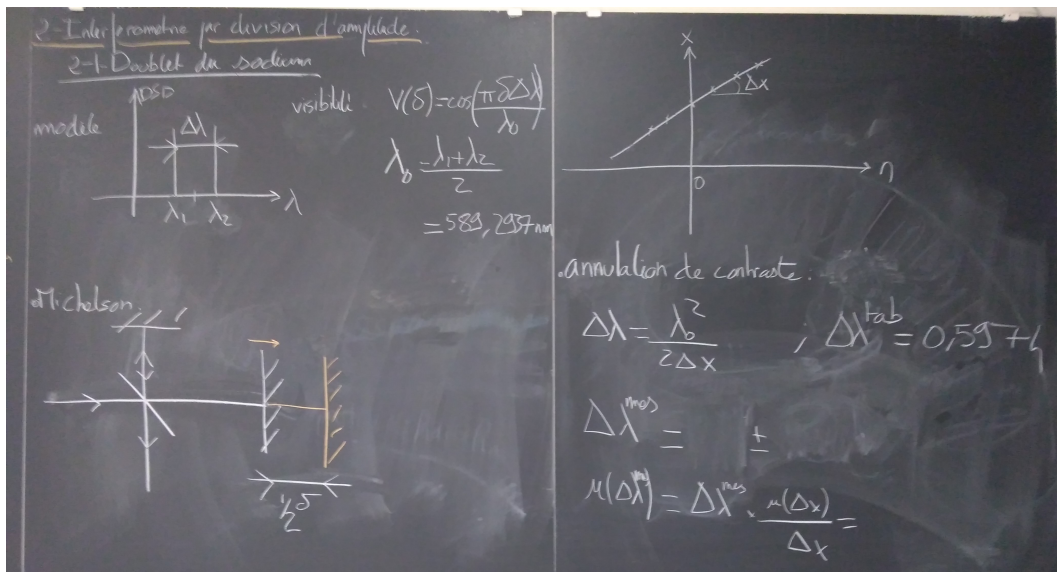 2-Interférométrie par division d'amplitude.
2-1-Doublet du sodium
DSD
modèle
Δλ
λ₁ λ₂
λ
visibilité V(δ)=cos(πδΔλ/λ₀)
λ₀ = (λ₁+λ₂)/2
= 589,2937nm
Michelson
1/2 δ
x
Δx
0
n
.annulation de contraste.
Δλ = λ₀²/2Δx ; Δλ^tab = 0,5974
Δλ^mes = ±
u(Δλ) = Δλ^mes . u(Δx)/Δx =